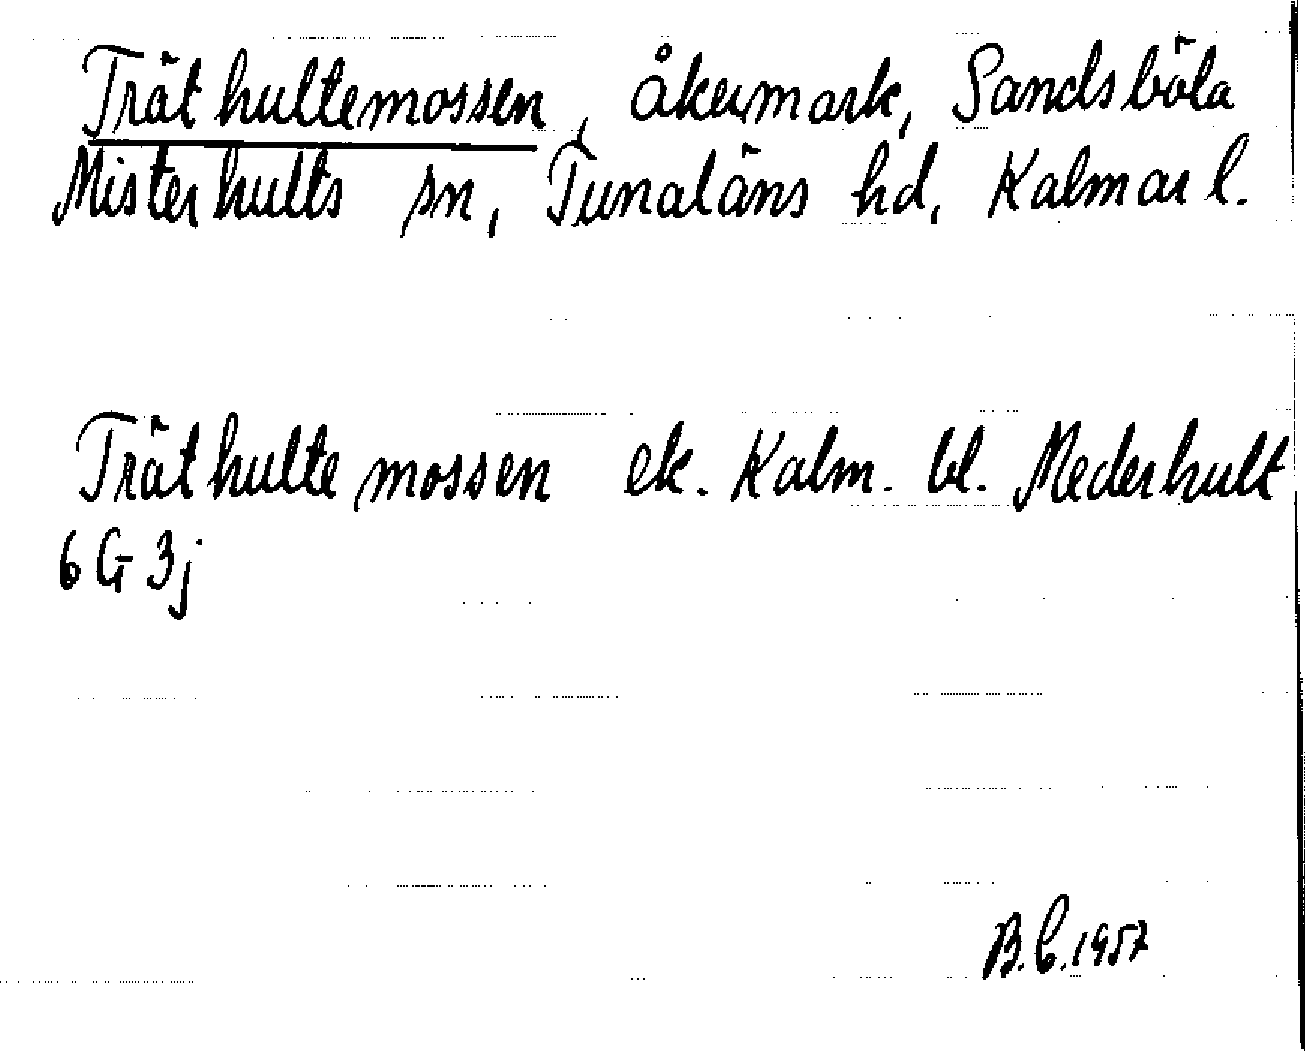 Träthultemossen, åkermark, Sandsböla
Misterhults sn, Tunaläns hd, Kalmar l.
Träthultemossen ek. Kalm. bl. Mederhult
6 G 3j
B.C.1957